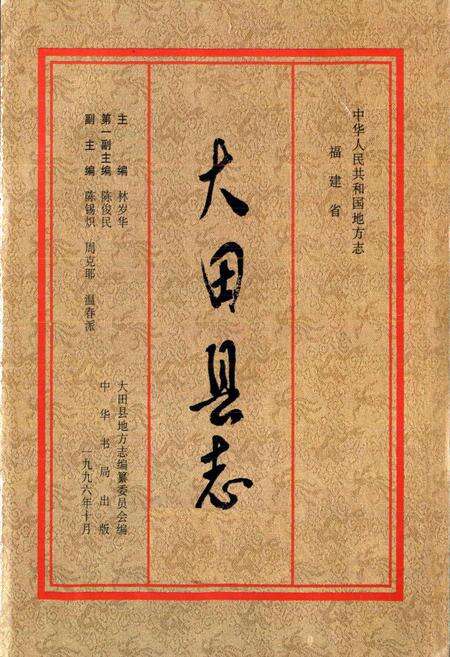 中华人民共和国地方志
福建省
大田县志
主编 林岁华
第一副主编 陈俊民
副主编 陈锡炽 周克耶 温春派
大田县地方志编纂委员会编
中华书局出版
一九九六年十月